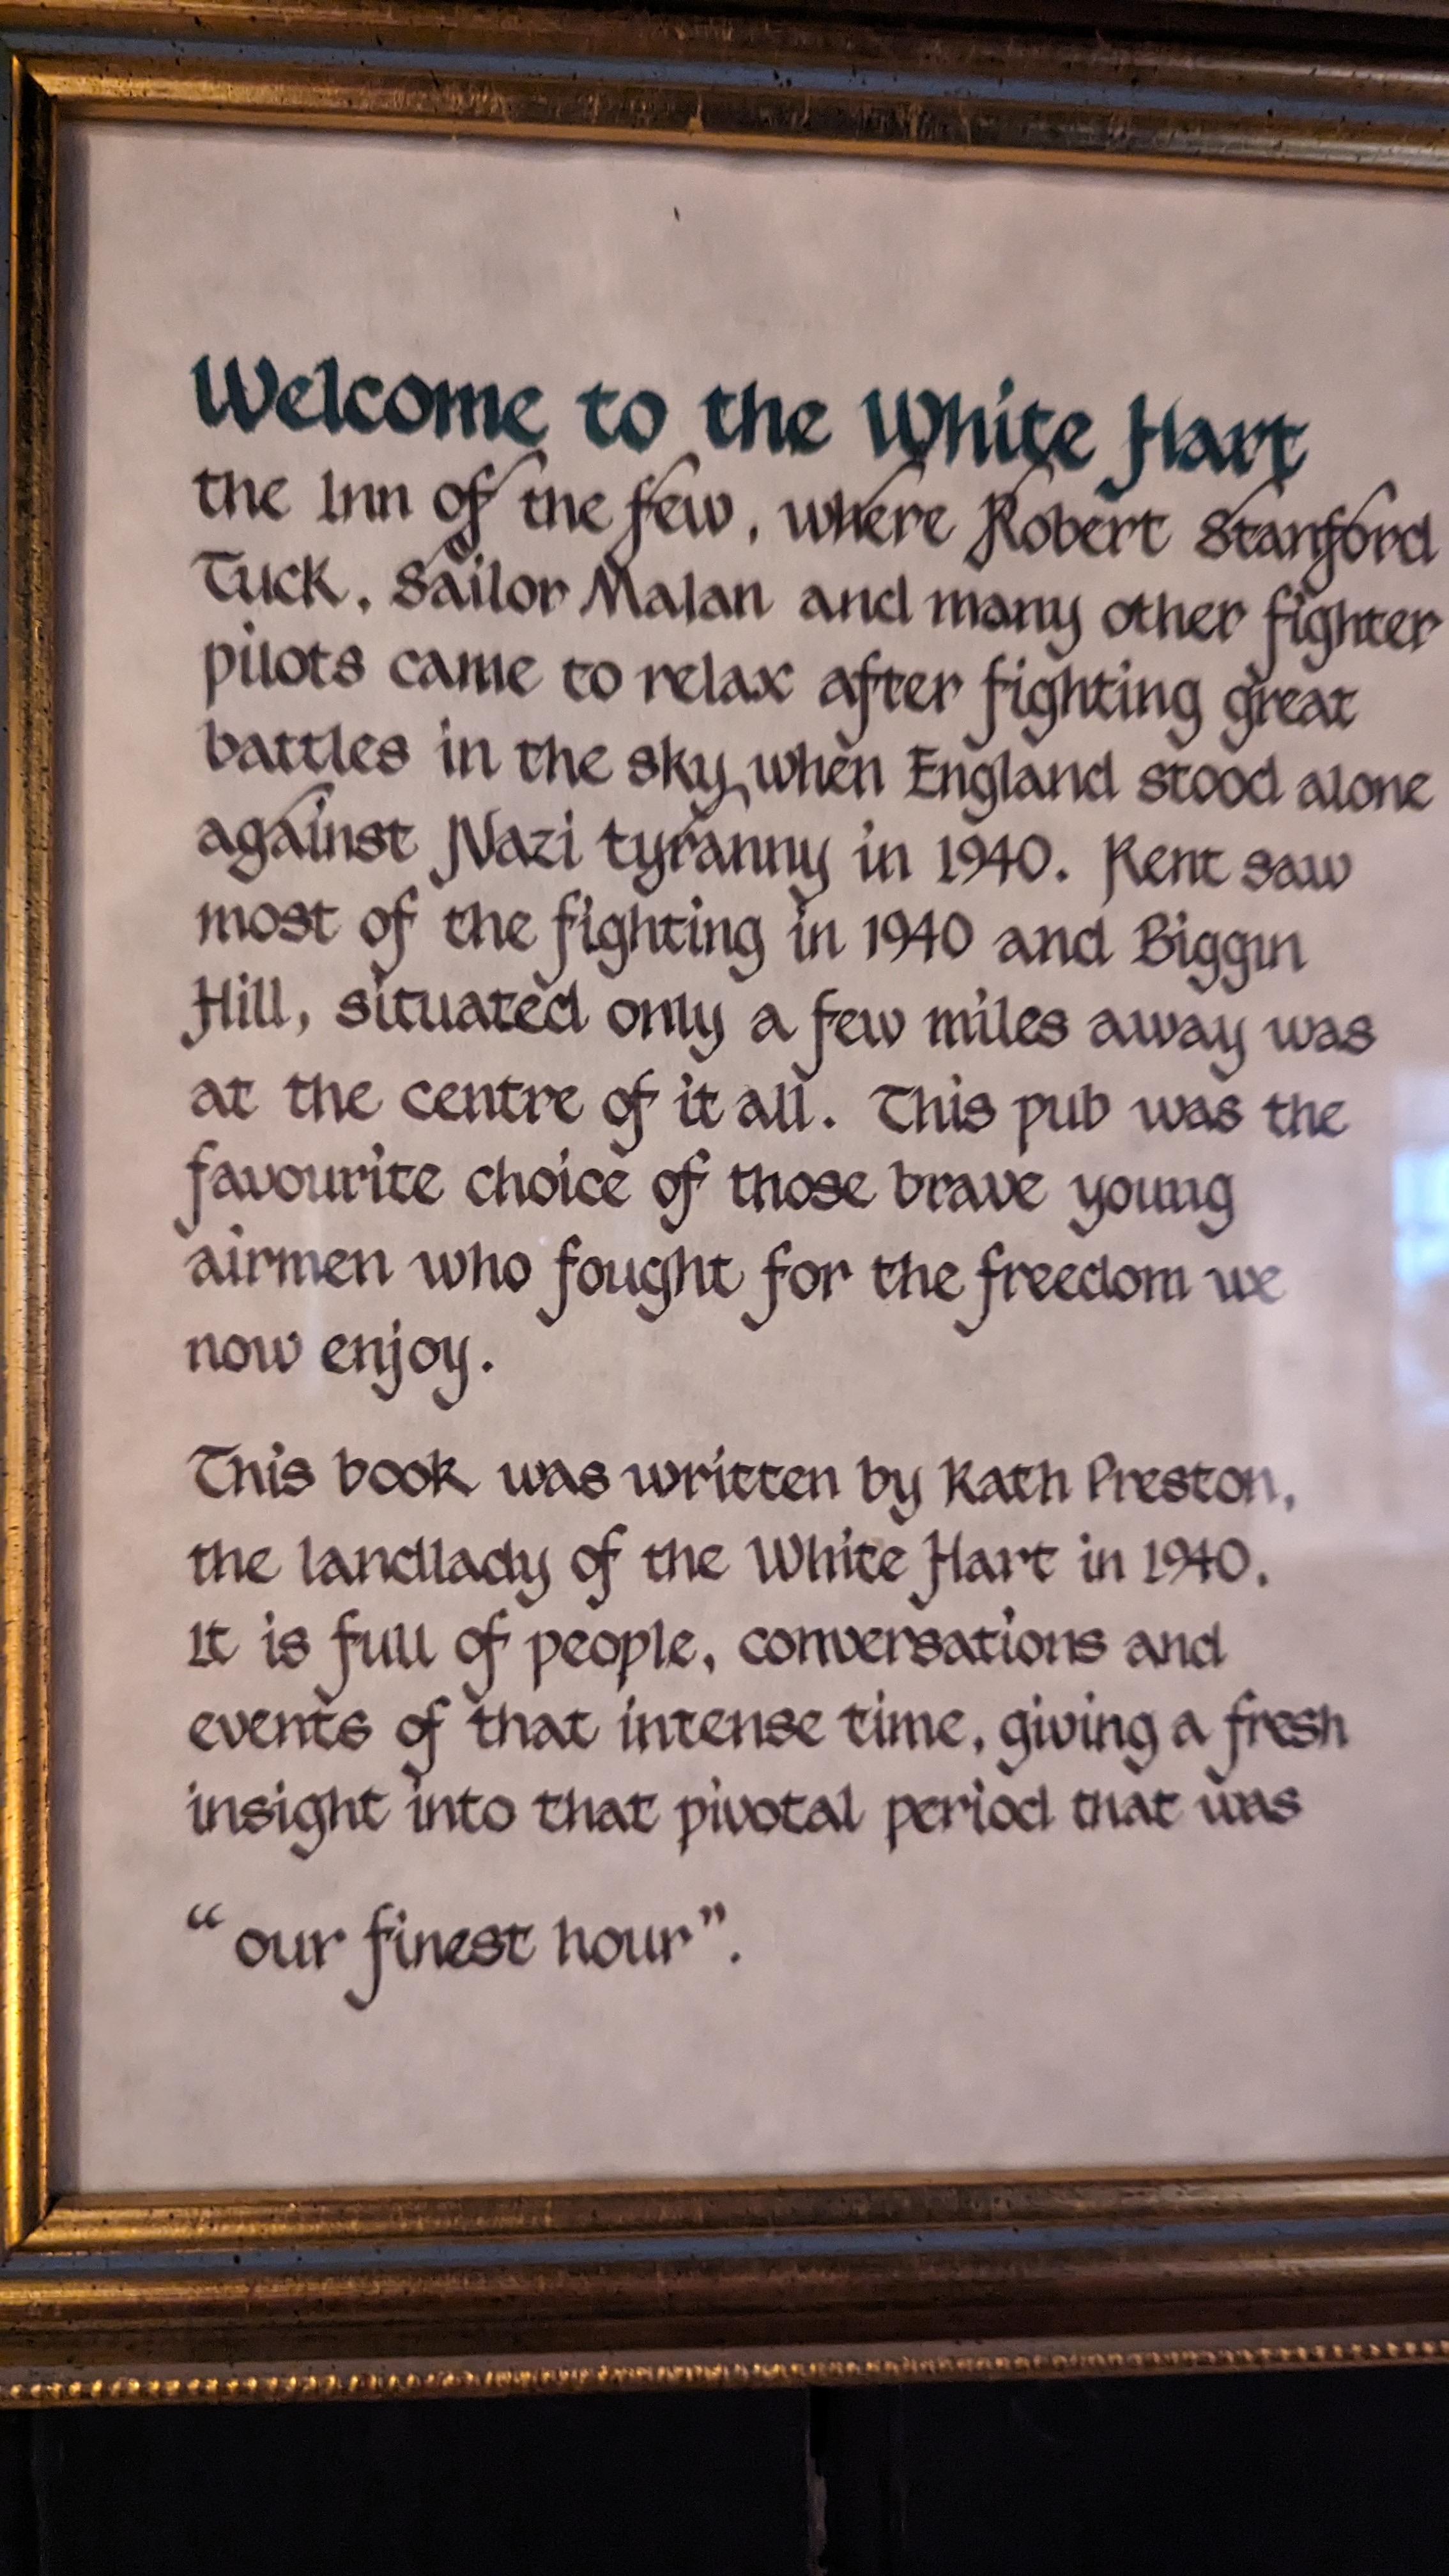 Welcome to the White Hart
the Inn of the few, where Robert Stanford
Tuck, Sailor Malan and many other fighter
pilots came to relax after fighting great
battles in the sky, when England stood alone
against Nazi tyranny in 1940. Kent saw
most of the fighting in 1940 and Biggin
Hill, situated only a few miles away was
at the centre of it all. This pub was the
favourite choice of those brave young
airmen who fought for the freedom we
now enjoy.
This book was written by Kath Preston,
the landlady of the White Hart in 1940.
It is full of people, conversations and
events of that intense time, giving a fresh
insight into that pivotal period that was
“our finest hour”.